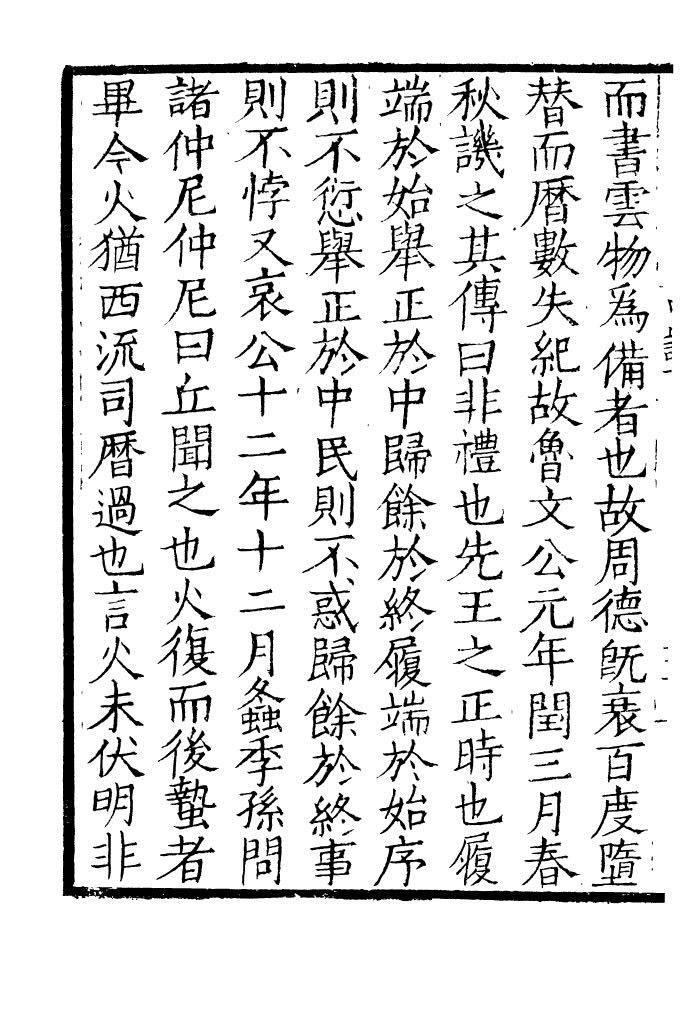 而書雲物為備者也故周德旣衰百度墮
替而曆數失紀故魯文公元年閏三月春
秋譏之其傳曰非禮也先王之正時也履
端於始舉正於中歸餘於終履端於始序
則不愆舉正於中民則不惑歸餘於終事
則不悖又哀公十二年十二月螽季孫問
諸仲尼仲尼曰丘聞之也火復而後蟄者
畢今火猶西流司曆過也言火未伏明非